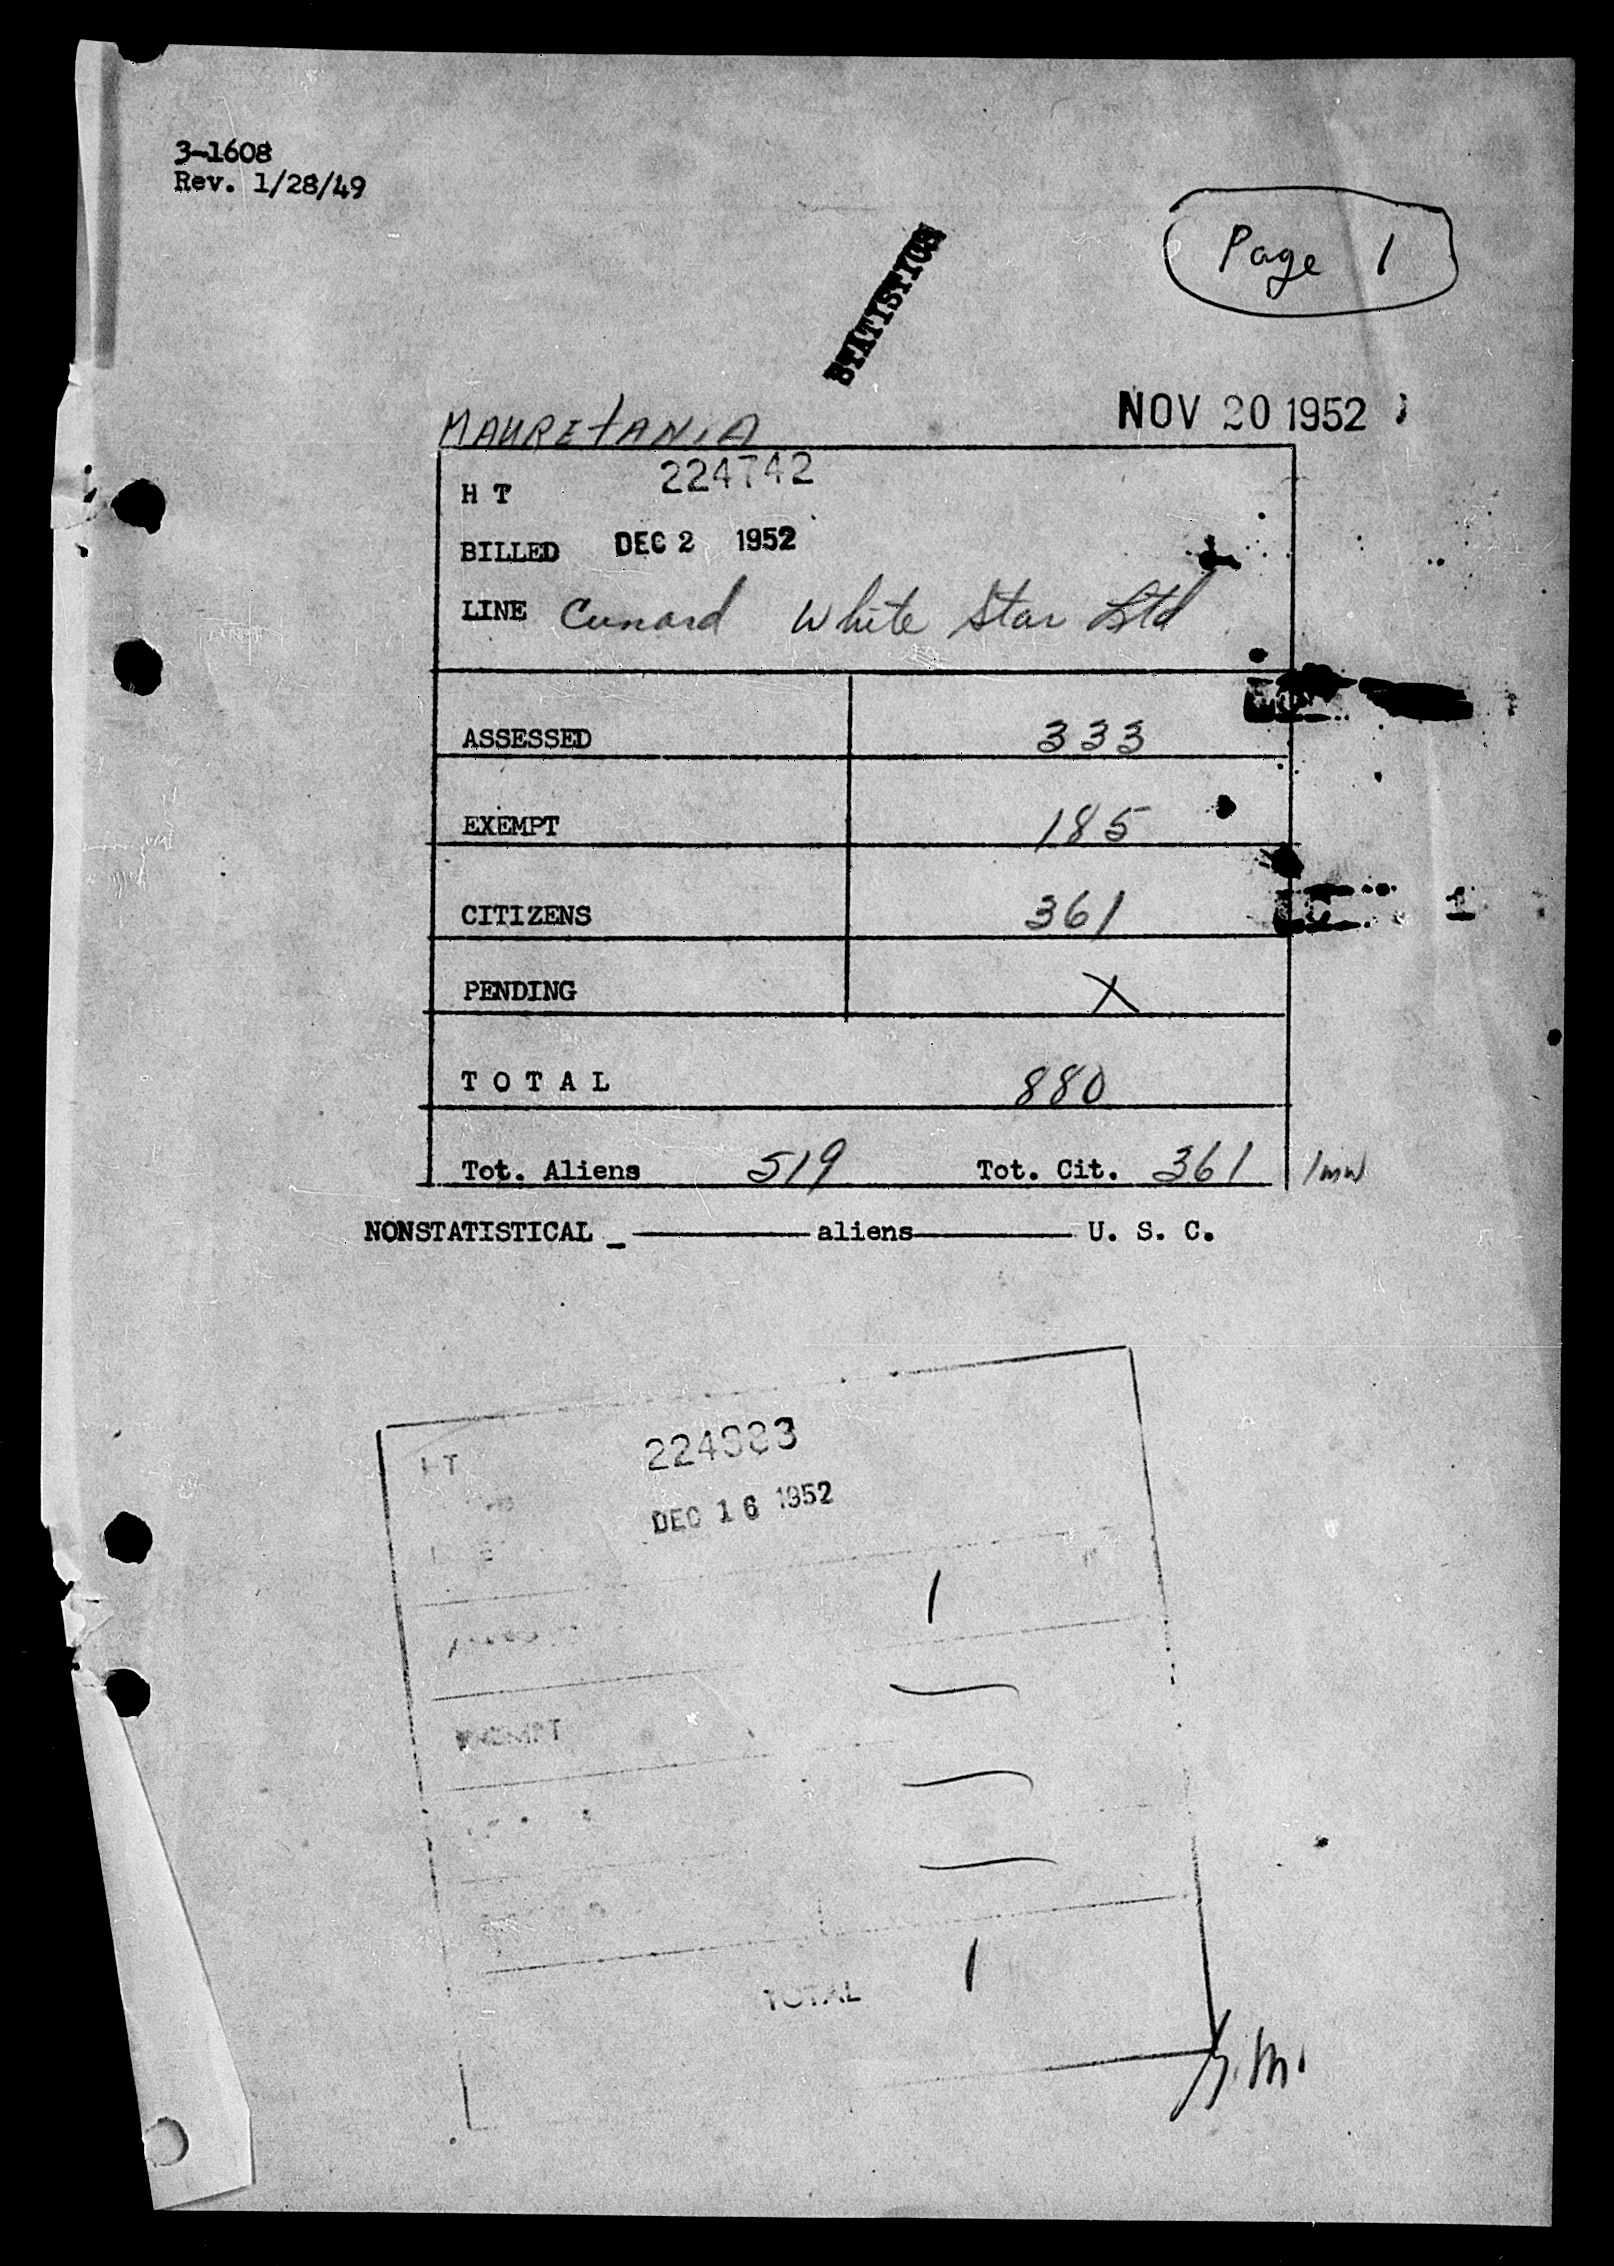 3-1608
Rev. 1/28/49
Page 1
STATISTICS
NOV 20 1952
MAURETANIA
H T 224742
BILLED DEC 2 1952
LINE Cunard White Star Ltd
ASSESSED 333
EXEMPT 185
CITIZENS 361
PENDING X
TOTAL 880
Tot. Aliens 519 Tot. Cit. 361
NONSTATISTICAL _ aliens U. S. C.
HT
DEC 16 1952
1
EXEMPT
TOTAL 1